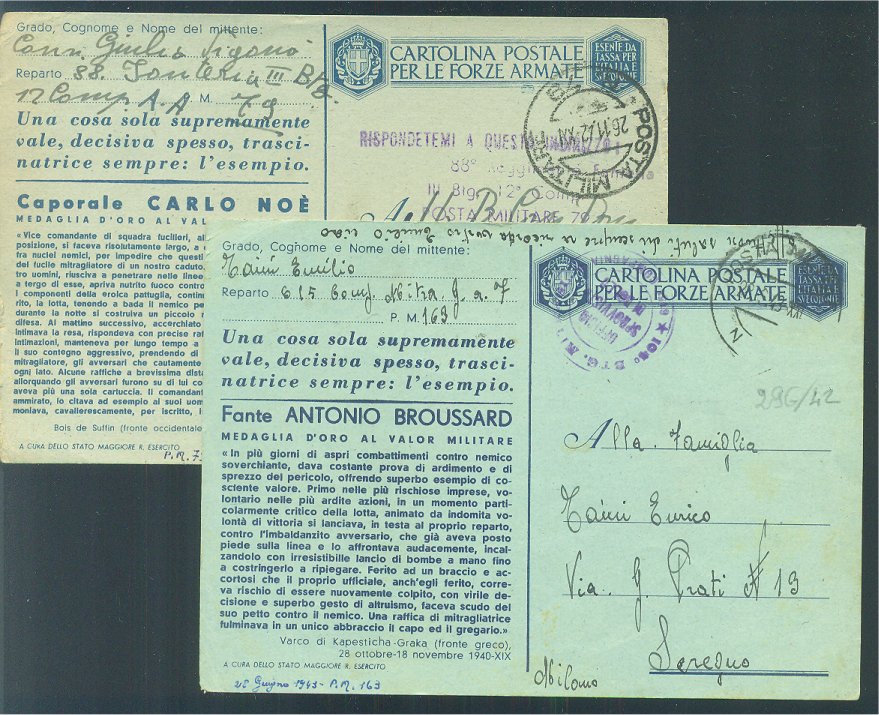 Grado, Cognome e Nome del mittente:
Reparto 88.
12 Comp A.A M. 79
Una cosa sola supremamente
vale, decisiva spesso, trasci-
natrice sempre: l'esempio.
Caporale CARLO NOÈ
MEDAGLIA D'ORO AL VAL
«Vice comandante di squadra fucilieri, al
posizione, si faceva risolutamente largo, a
tra nuclei nemici, per impedire che questi
del fucile mitragliatore di un nostro caduto,
tro uomini, riusciva a penetrare nelle linee
a tergo di esse, apriva nutrito fuoco contro
i componenti della eroica pattuglia, contin
rito, la lotta, tenendo a bada il nemico per
durante la notte si costruiva un piccolo
difesa. Al mattino successivo, accerchiato
intimava la resa, rispondeva con precise raf
intimazioni, manteneva per lungo tempo a
Il suo contegno aggressivo, prendendo di
mitragliatore, gli avversari che cautamente
ogni lato. Alcune raffiche a brevissima dista
allorquando gli avversari furono su di lui co
aveva più una sola cartuccia. Il comandant
ammirato, lo citava ad esempio ai suoi uom
moniava, cavallerescamente, per iscritto, l'
Bois de Suffin (fronte occidentale
A CURA DELLO STATO MAGGIORE R. ESERCITO
P.M. 7
CARTOLINA POSTALE
PER LE FORZE ARMATE
ESENTE DA
TASSA PER
L'ITALIA E
SVE
RISPONDETEMI A QUESTO
88°
III 12ª Comp
POSTA MILITARE 79
POSTA MILITARE
26.11.42.XXI
Grado, Cognome e Nome del mittente:
Emilio
Reparto 615 Comp. Mitra. G. a. F
P. M. 163
Una cosa sola supremamente
vale, decisiva spesso, trasci-
natrice sempre: l'esempio.
Fante ANTONIO BROUSSARD
MEDAGLIA D'ORO AL VALOR MILITARE
«In più giorni di aspri combattimenti contro nemico
soverchiante, dava costante prova di ardimento e di
sprezzo del pericolo, offrendo superbo esempio di co-
sciente valore. Primo nelle più rischiose imprese, vo-
lontario nelle più ardite azioni, in un momento parti-
colarmente critico della lotta, animato da indomita vo-
lontà di vittoria si lanciava, in testa al proprio reparto,
contro l'imbaldanzito avversario, che già aveva posto
piede sulla linea e lo affrontava audacemente, incal-
zandolo con irresistibile lancio di bombe a mano fino
a costringerlo a ripiegare. Ferito ad un braccio e ac-
cortosi che il proprio ufficiale, anch'egli ferito, corre-
va rischio di essere nuovamente colpito, con virile de-
cisione e superbo gesto di altruismo, faceva scudo del
suo petto contro il nemico. Una raffica di mitragliatrice
fulminava in un unico abbraccio il capo ed il gregario.»
Varco di Kapesticha-Graka (fronte greco),
28 ottobre-18 novembre 1940-XIX
A CURA DELLO STATO MAGGIORE R. ESERCITO
25 Giugno 1943 - P.M. 163
CARTOLINA POSTALE
PER LE FORZE ARMATE
296/42
Alla Famiglia
Enrico
Via. G. Prati N 13
Seregno
Milano